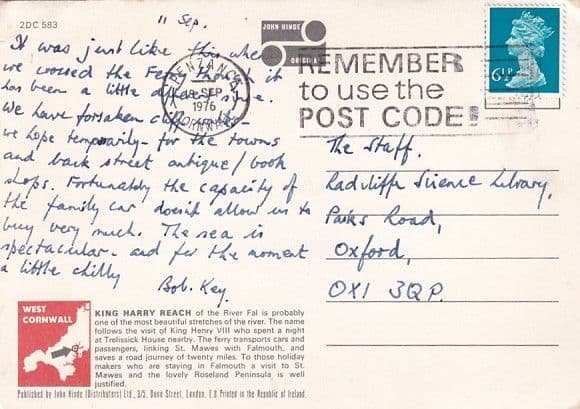 2DC 583
11 Sep.
JOHN HINDE
ORIGINAL
It was just like this when
we crossed the Ferry though it
has been a little since.
We have forsaken cliff walks -
we hope temporarily - for the towns
and back street antique/book
shops. Fortunately the capacity of
the family car doesn't allow us to
buy very much. The sea is
spectacular - and for the moment
a little chilly
Bob. Key.
PENZANCE
SEP
1976
CORNWALL
REMEMBER
to use the
POST CODE!
6½P
The Staff.
Radcliffe Science Library,
Parks Road,
Oxford,
OX1 3QP.
WEST
CORNWALL
KING HARRY REACH of the River Fal is probably
one of the most beautiful stretches of the river. The name
follows the visit of King Henry VIII who spent a night
at Trelissick House nearby. The ferry transports cars and
passengers, linking St. Mawes with Falmouth, and
saves a road journey of twenty miles. To those holiday
makers who are staying in Falmouth a visit to St.
Mawes and the lovely Roseland Peninsula is well
justified.
Published by John Hinde (Distributors) Ltd., 3/5, Dune Street, London, E.8 Printed in the Republic of Ireland.